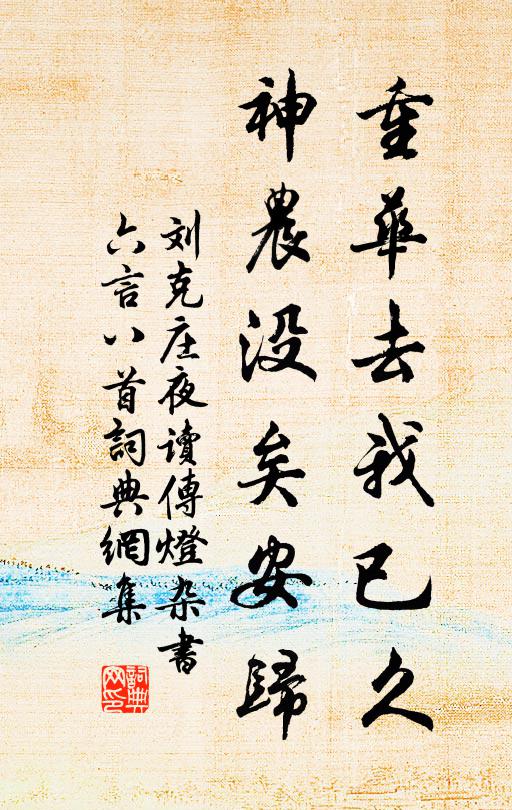 重華去我已久
神農没矣安歸
刘克庄夜讀傳燈杂書
六言八首詞典網集
詞典
网印